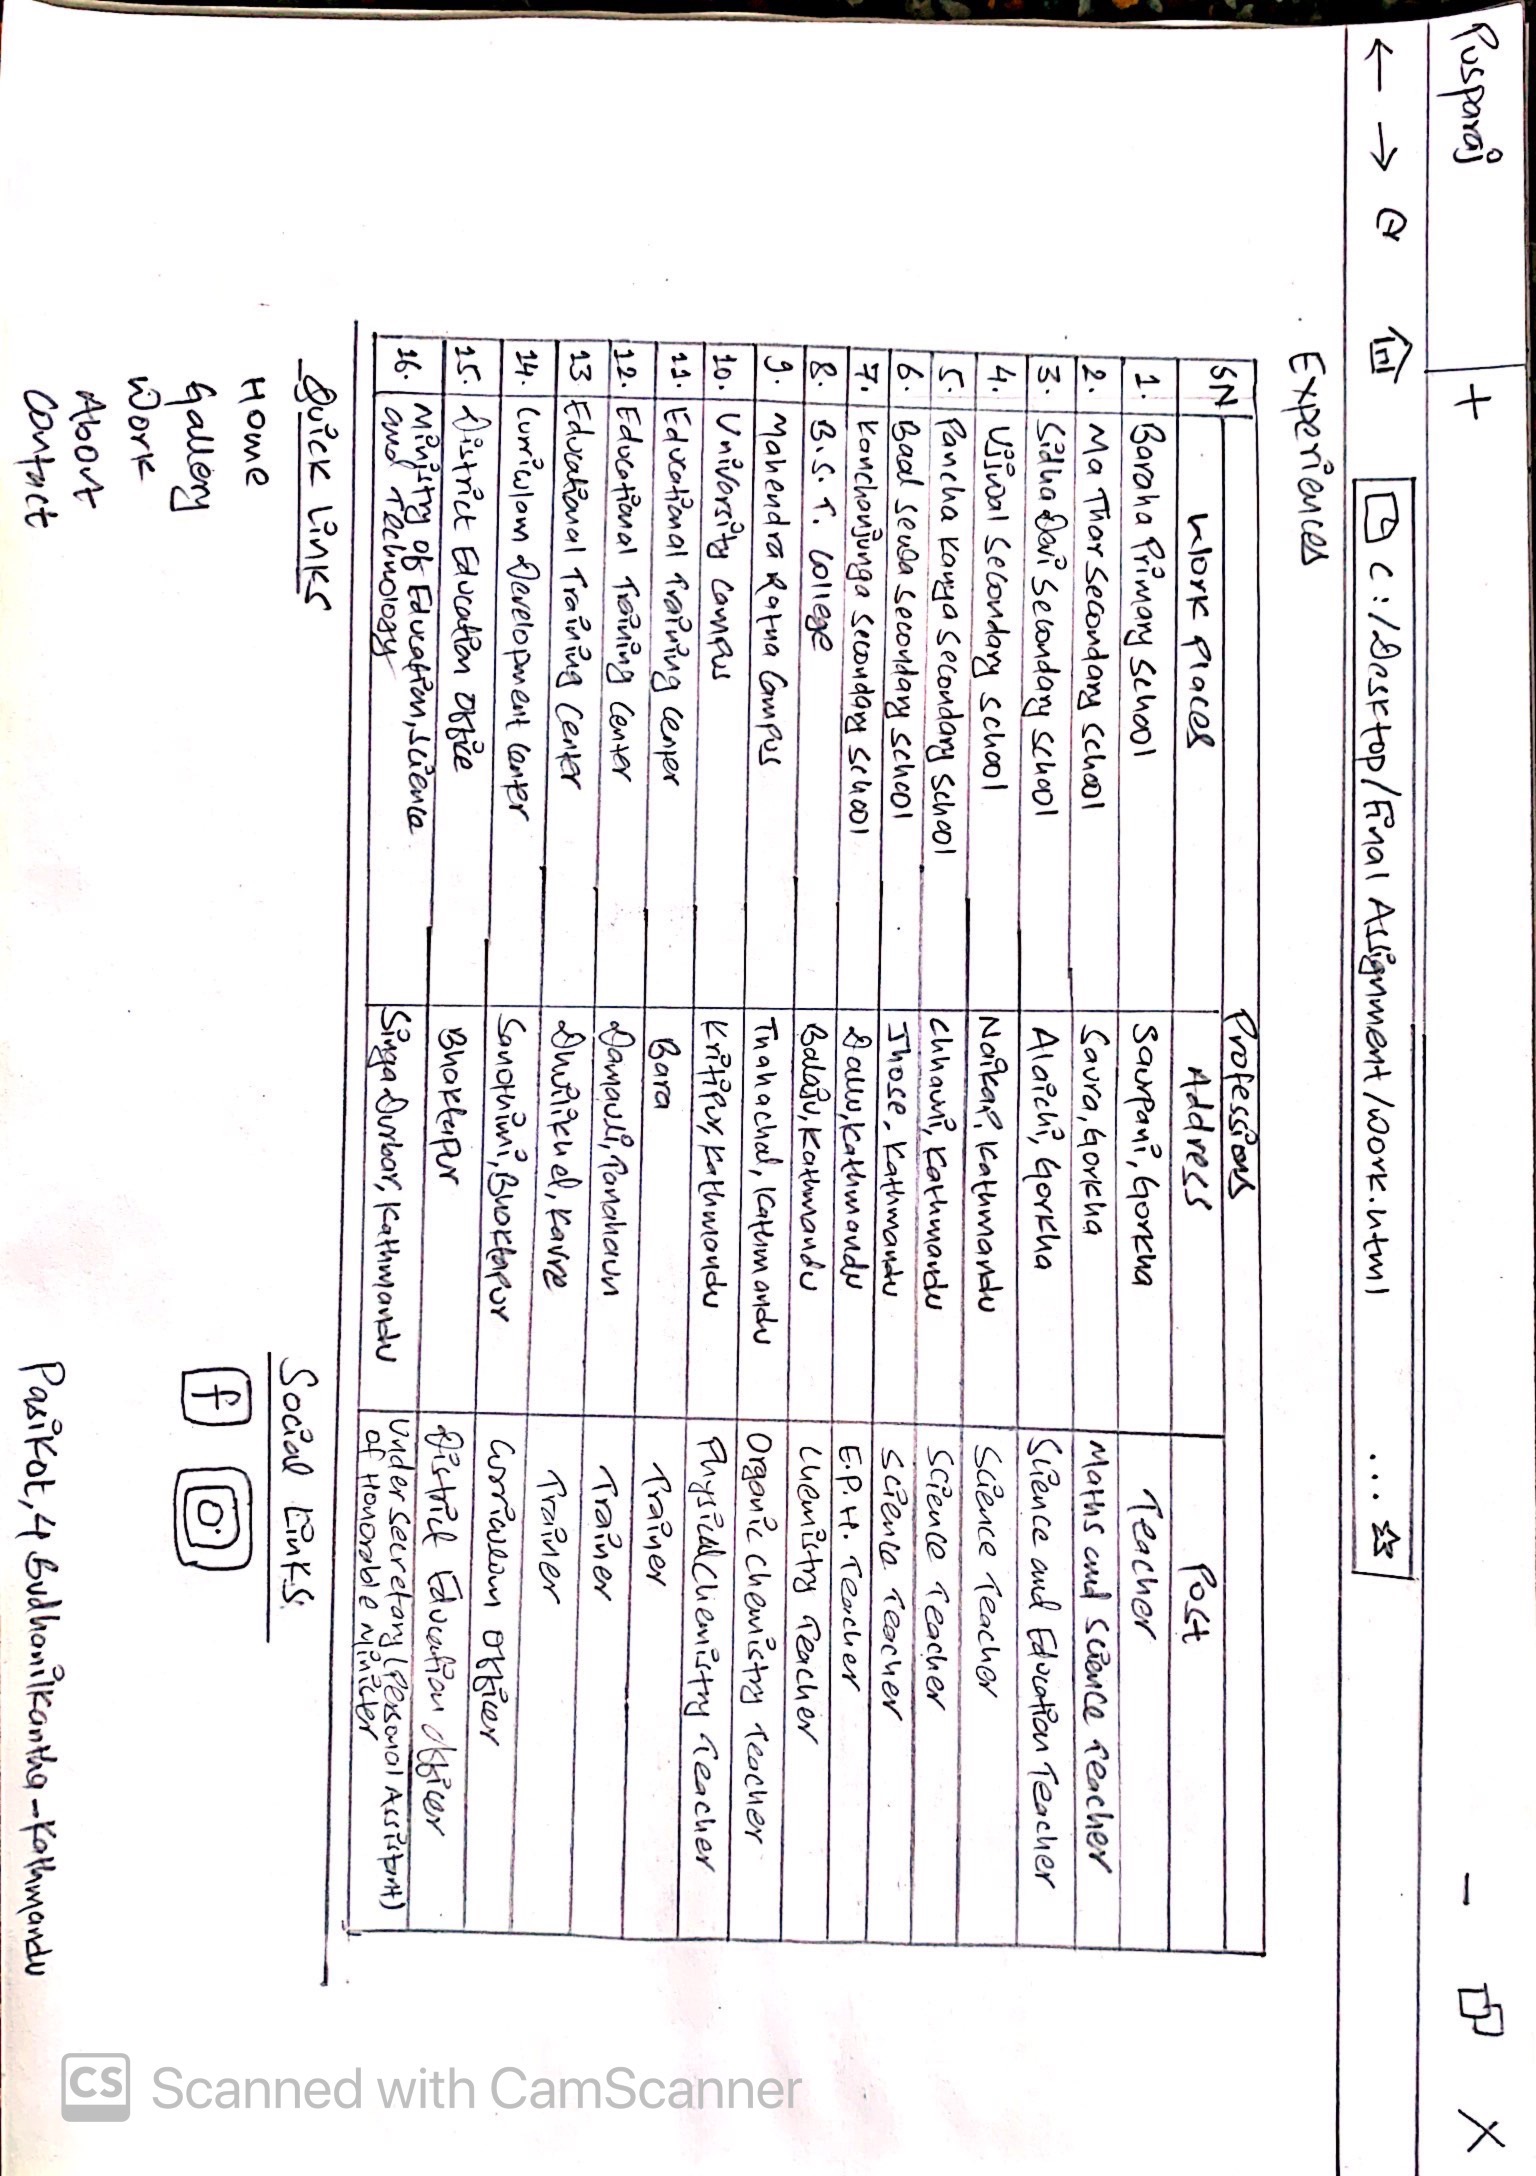 Pusparaj +
C:/Desktop/Final Assignment/Work.html ...
Experiences
Professions
SN Work Places Address Post
1. Baraha Primary School Saurpani, Gorkha Teacher
2. Ma Thar Secondary School Saura, Gorkha Maths and Science Teacher
3. Sidha Dai Secondary School Alaichi, Gorkha Science and Education Teacher
4. Ujjwal Secondary School Naikap, Kathmandu Science Teacher
5. Pancha Kanya Secondary School Chhauni, Kathmandu Science Teacher
6. Baal Sewa Secondary School Jhose, Kathmandu Science Teacher
7. Kanchanjunga Secondary School Dallu, Kathmandu E.P.H. Teacher
8. B.S.T. College Balaju, Kathmandu Chemistry Teacher
9. Mahendra Ratna Campus Tahachal, Kathmandu Organic Chemistry Teacher
10. University Campus Kritipur, Kathmandu Physical Chemistry Teacher
11. Educational Training Center Bara Trainer
12. Educational Training Center Damauli, Tanahaun Trainer
13 Educational Training Center Dhulikhel, Kavre Trainer
14. Curriculam Development Center Sanothimi, Bhaktapur Curriculum Officer
15. District Education Office Bhaktapur District Education Officer
16. Ministry of Education, Science Singa Durbar, Kathmandu Under Secretary (Personal Assistant)
and Technology of Honorable Minister
Quick Links Social Links:
Home
Gallery
Work
About
Contact Pasikot, 4 Budhanilkantha - Kathmandu
CS Scanned with CamScanner